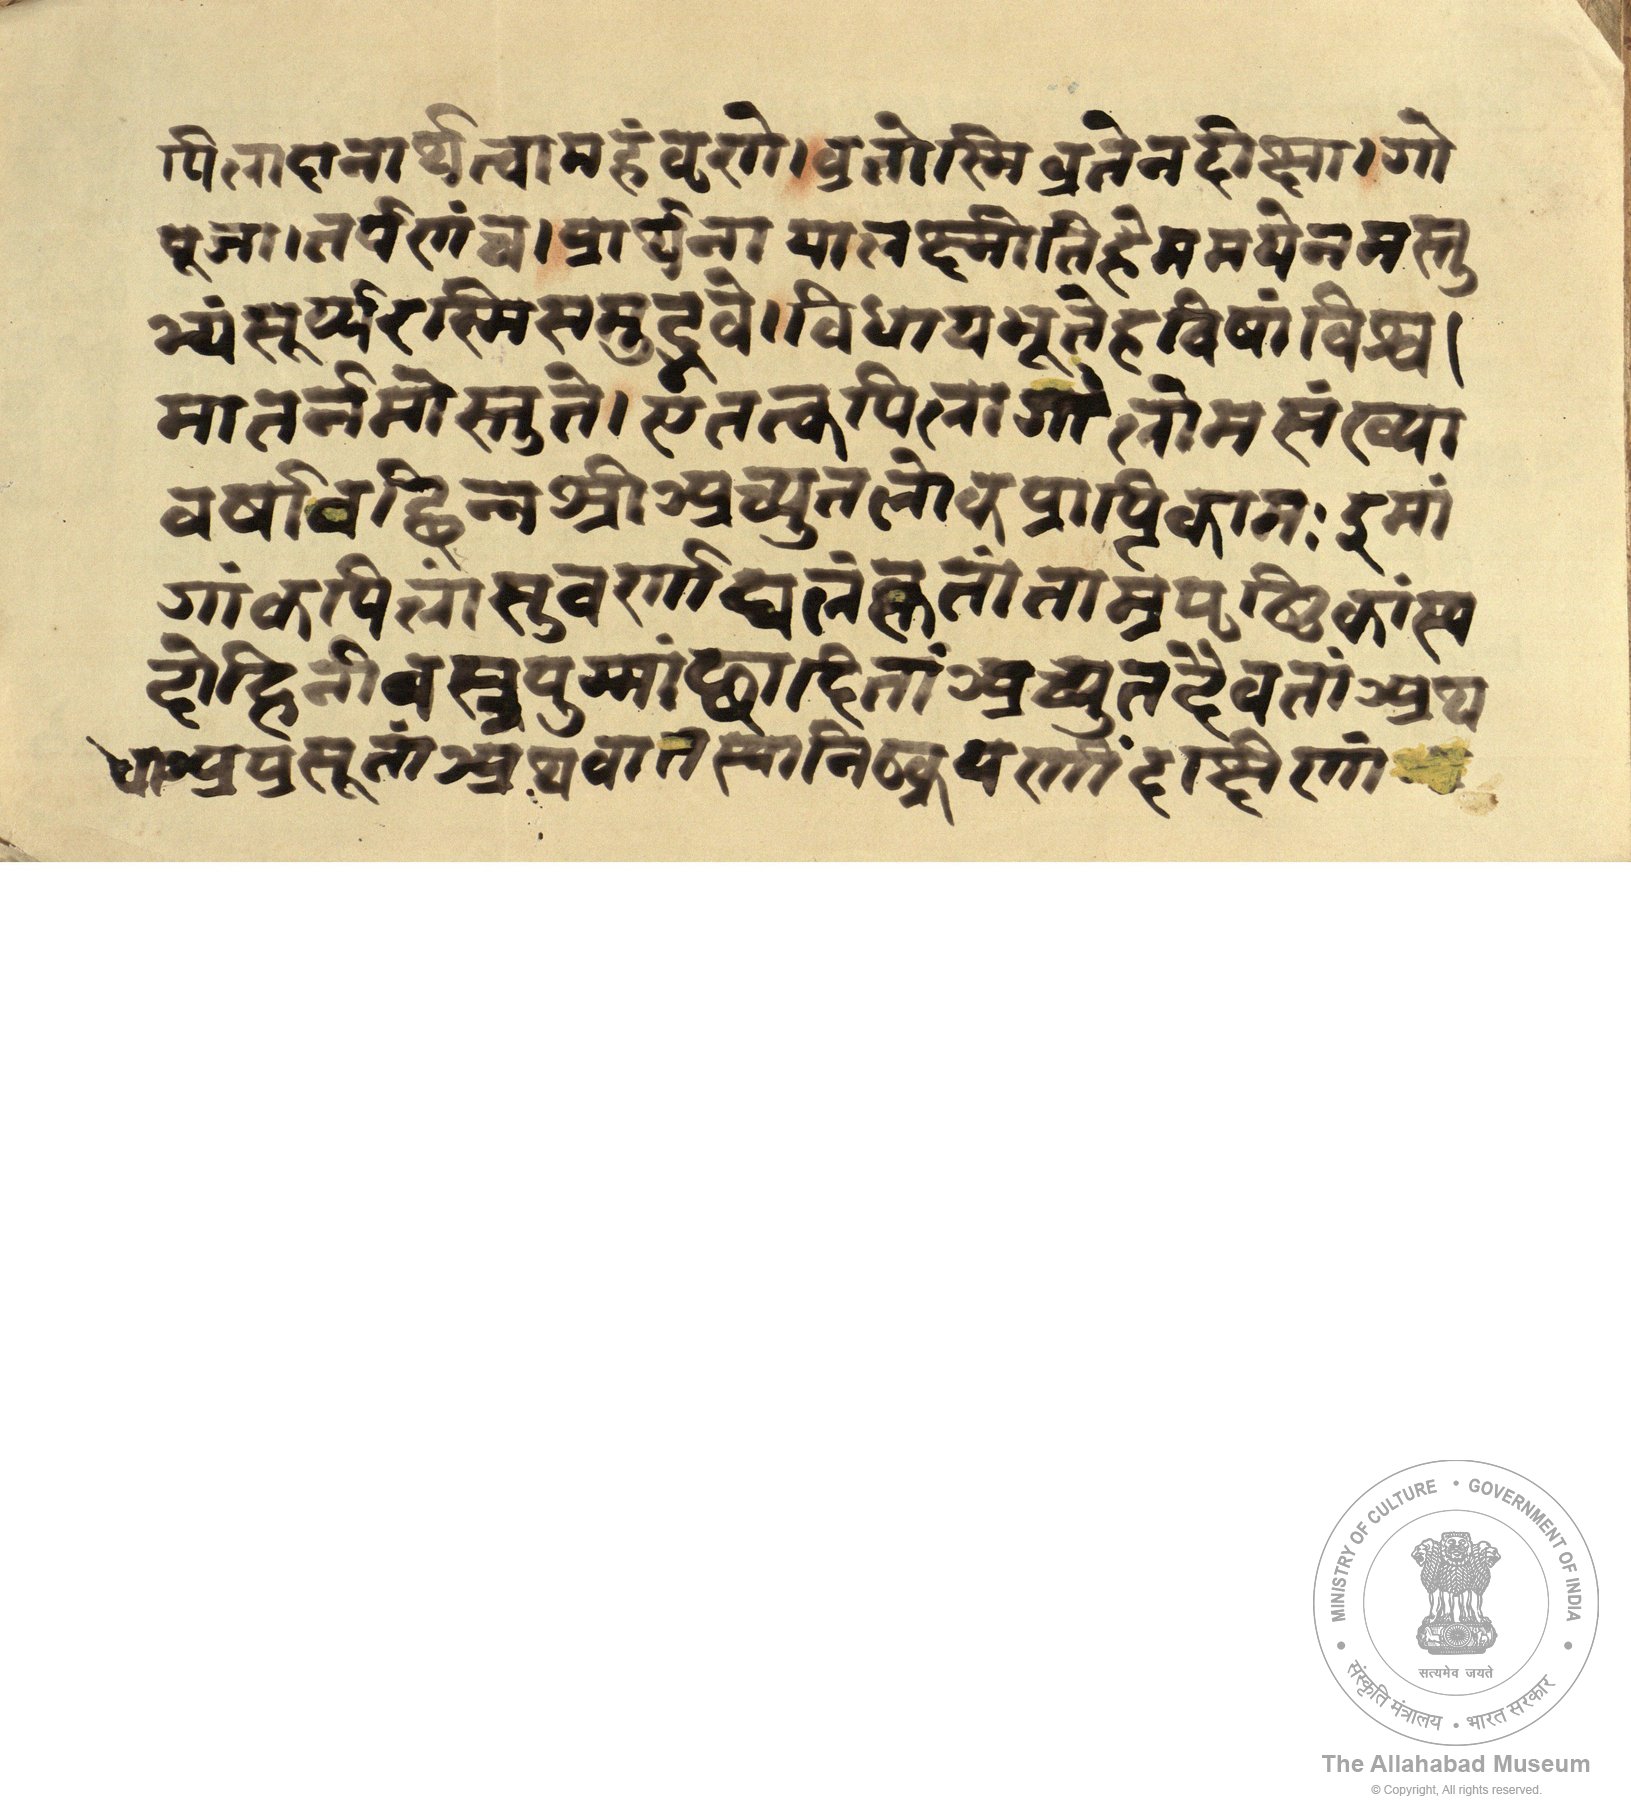 पिलादानार्थत्वामहंवृणे।वृतोस्मिव्रतेनदीक्षा।गो
पूजा।तर्पणंच।प्रार्थनायालक्ष्मीतिहैममयेनमस्तु
भ्यंसूर्य्यरस्मिसमुद्भवे।विधायभूतेहविषांविश्व।
मातर्नमोस्तुते।एतत्कपिलागोलोमसंख्या
वर्षावछिन्नश्रीअच्युतलोकप्राप्तिकामः इमां
गांकपिलांसुवर्णाद्यलंकृतांताम्रपृष्ठिकांस्य
दोहिनीवस्त्रयुग्मांछादितांअच्युतदैवतांअथ
अप्रप्रसूतांअथवातस्यानिष्क्रयणीं दक्षिणां
MINISTRY OF CULTURE • GOVERNMENT OF INDIA
सत्यमेव जयते
संस्कृति मंत्रालय • भारत सरकार
The Allahabad Museum
© Copyright, All rights reserved.